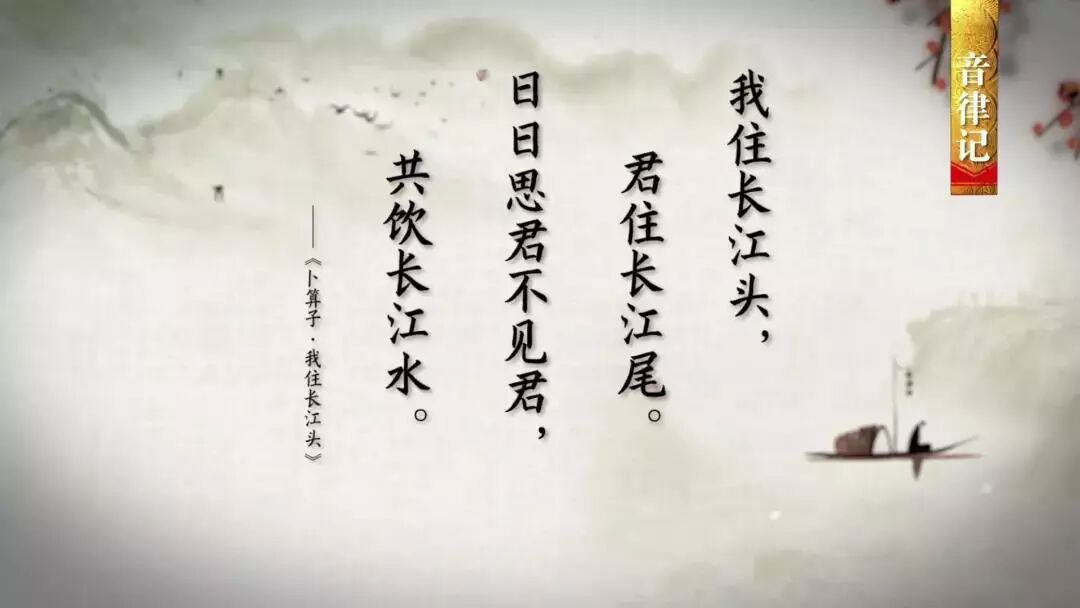 音律记
我住长江头，
君住长江尾。
日日思君不见君，
共饮长江水。
——《卜算子·我住长江头》